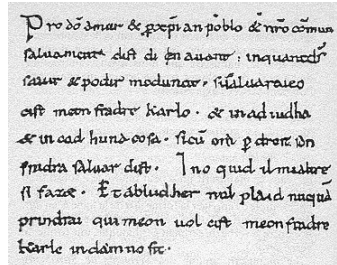 Pro dõ amur & p xpĩan poblo & nr̃o cõmun
saluament. dist di en auant. inquant dš
sauir & podir medunat. sisaluaraieo
cist meon fradre Karlo. & in adiudha
& in cad huna cosa. sicũ om p dreit son
fradra saluar dist. Ino quid il mialtre
si fazet. Et abludher nul plaid nuquã
prindrai qui meon uol cist meon fradre
Karle in damno sit.